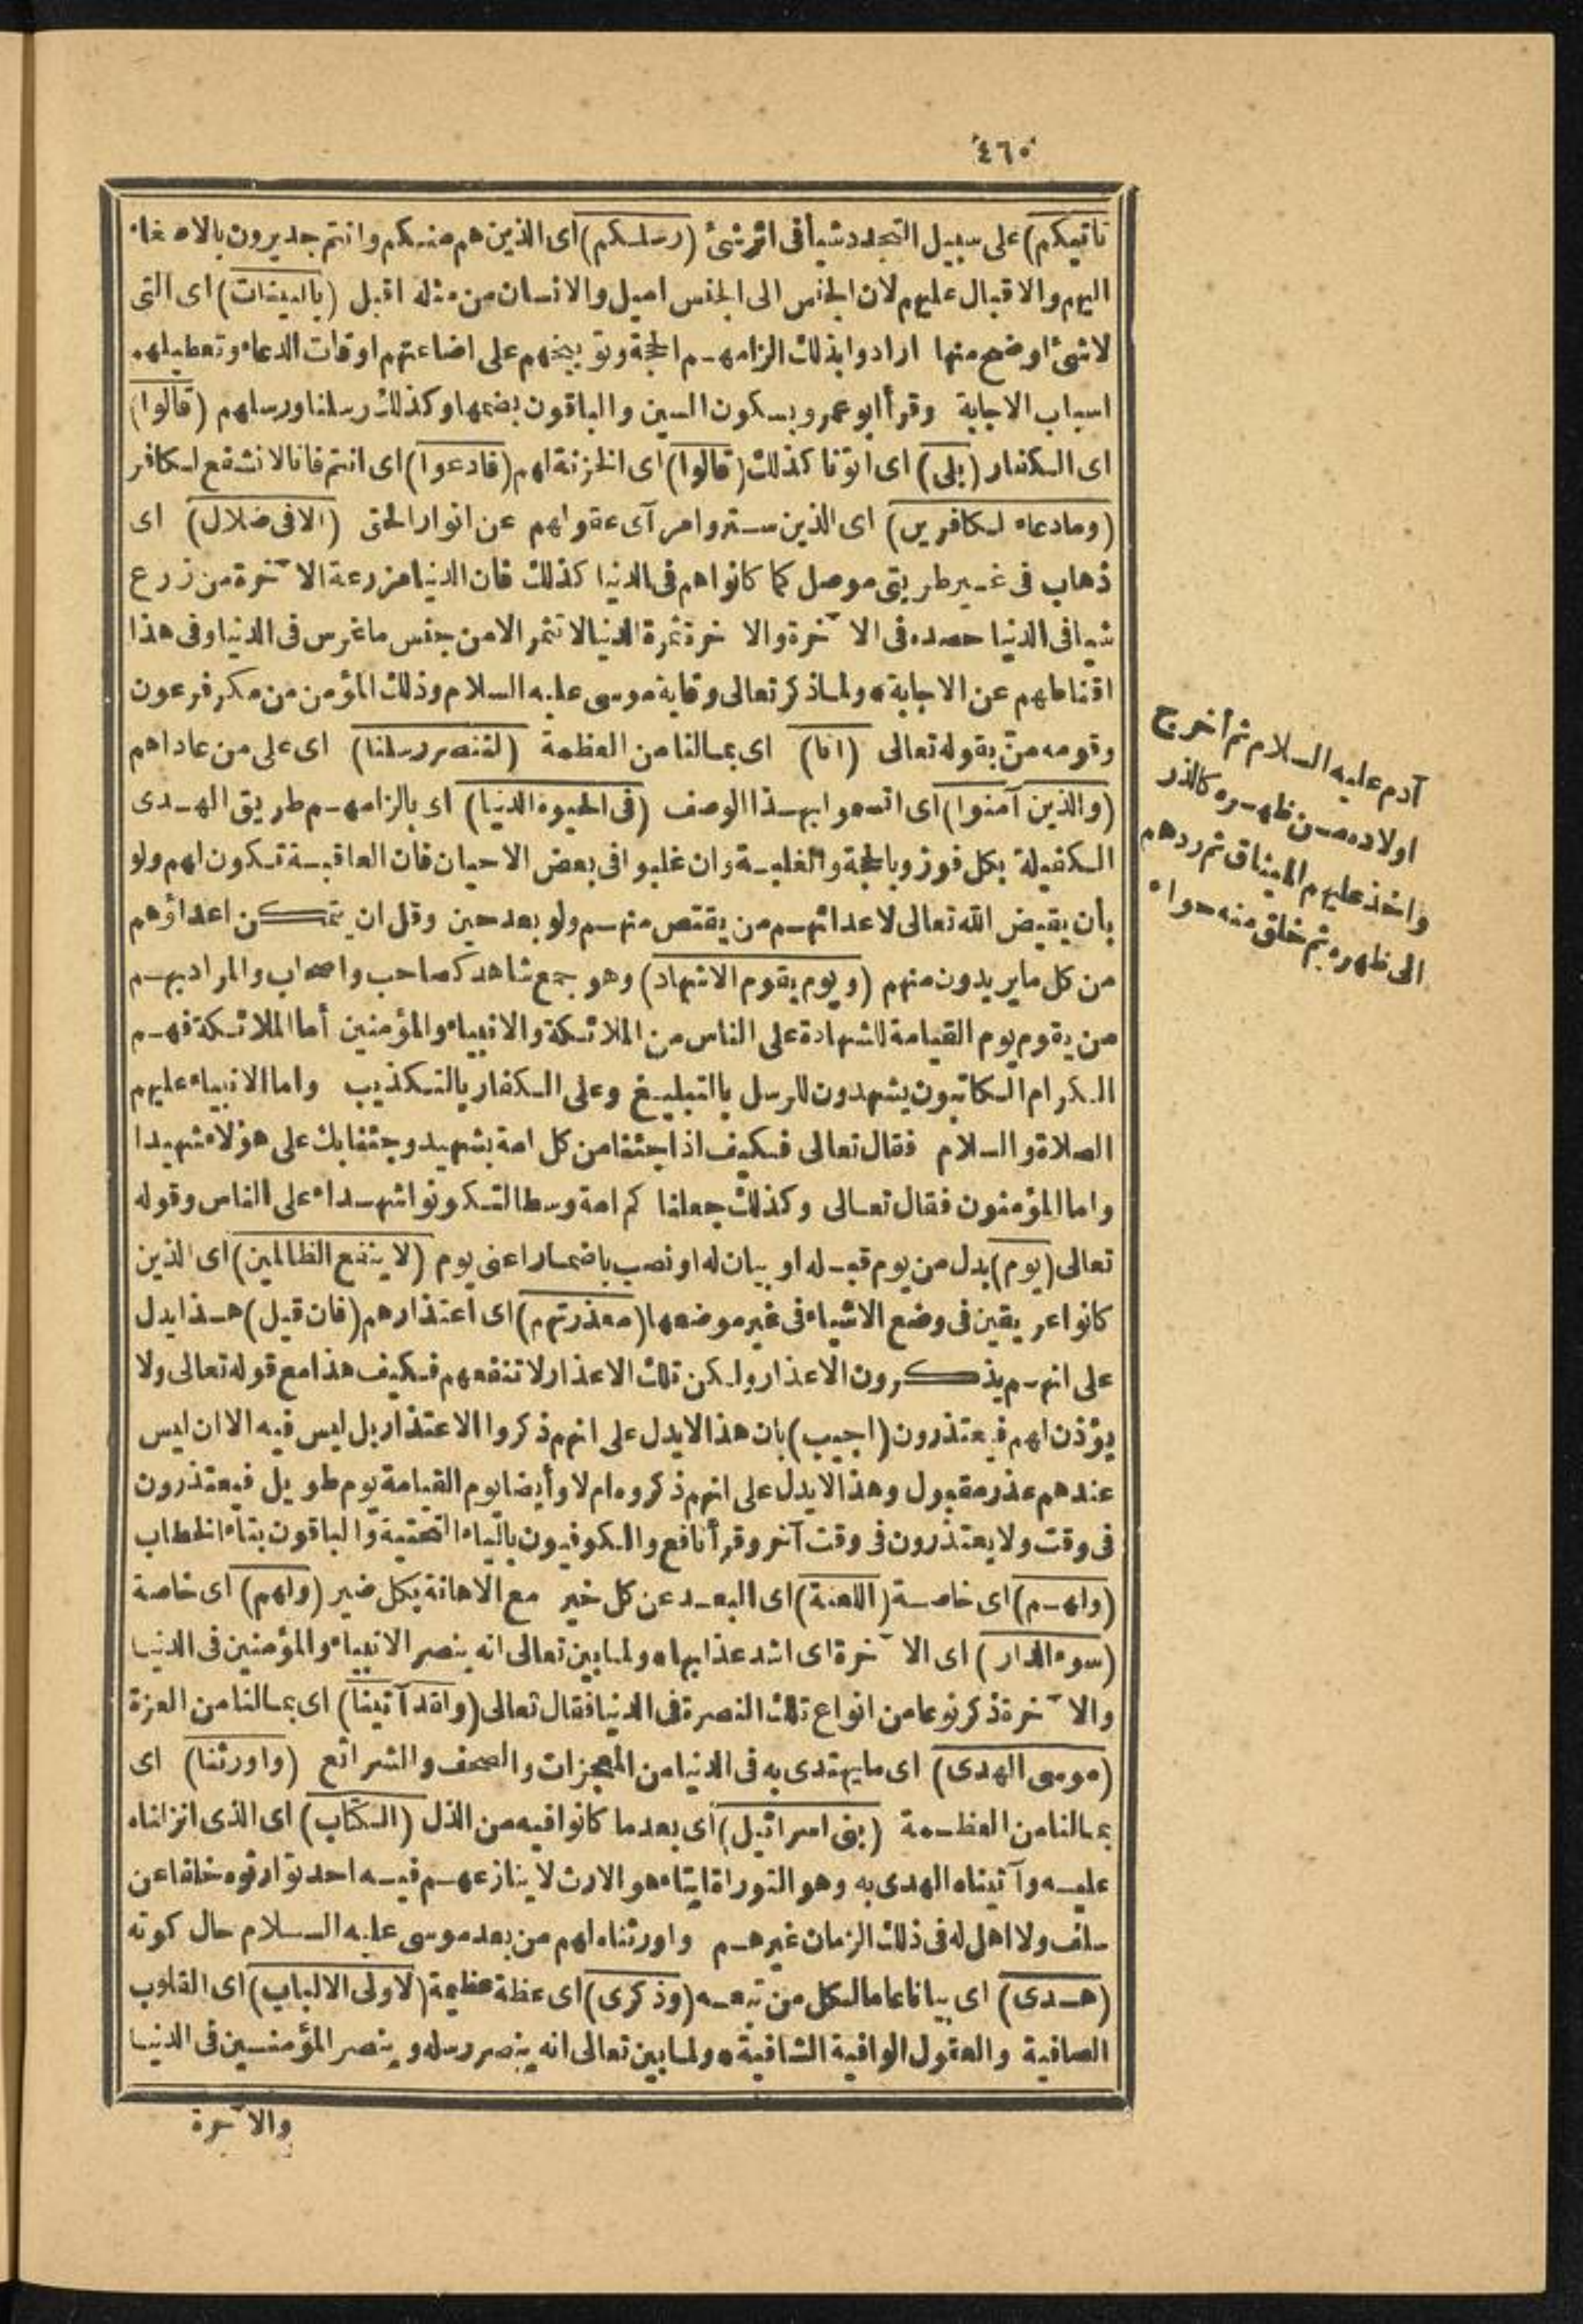 ٤٦٠
تأتيكم) على سبيل التجدد شيأ فى اثر شئ (رسلكم) اى الذين هم منكم وانتم جديرون بالاصغاء
اليهم والاقبال عليهم لان الجنس الى الجنس اميل والانسان من مثله اقبل (بالبينات) اى التى
لاشئ اوضح منها ارادوا بذلك الزامهم الحجة وتوبيخهم على اضاعتهم اوقات الدعاء وتعطيلهم
اسباب الاجابة وقرأ ابو عمرو بسكون السين والباقون بضمها وكذلك رسلنا ورسلهم (قالوا)
اى الكفار (بلى) اى اتونا كذلك (قالوا) اى الخزنة لهم (فادعوا) اى انتم فانا لا نشفع لكافر
(ومادعاء الكافرين) اى الذين ستروا مرآى عقولهم عن انوار الحق (الا فى ضلال) اى
ذهاب فى غير طريق موصل كما كانوا هم فى الدنيا كذلك فان الدنيا مزرعة الآخرة من زرع
شيأ فى الدنيا حصده فى الآخرة والآخرة ثمرة الدنيا لا تثمر الا من جنس ما غرس فى الدنيا وفى هذا
اقناطهم عن الاجابة ولما ذكر تعالى وقاية موسى عليه السلام وذلك المؤمن من مكر فرعون
وقومه منّ بقوله تعالى (انا) اى بما لنا من العظمة (لننصر رسلنا) اى على من عاداهم
(والذين آمنوا) اى اتسموا بهذا الوصف (فى الحيوة الدنيا) اى بالزامهم طريق الهدى
الكفيلة بكل فوز وبالحجة والغلبة وان غلبوا فى بعض الاحيان فان العاقبة تكون لهم ولو
بأن يقيض الله تعالى لاعدائهم من يقتص منهم ولو بعد حين وقل ان يتمكن اعداؤهم
من كل ما يريدون منهم (ويوم يقوم الاشهاد) وهو جمع شاهد كصاحب واصحاب والمراد بهم
من يقوم يوم القيامة للشهادة على الناس من الملائكة والانبياء والمؤمنين أما الملائكة فهم
الكرام الكاتبون يشهدون للرسل بالتبليغ وعلى الكفار بالتكذيب واما الانبياء عليهم
الصلاة والسلام فقال تعالى فكيف اذا جئنا من كل امة بشهيد وجئنا بك على هؤلاء شهيدا
واما المؤمنون فقال تعالى وكذلك جعلناكم امة وسطا لتكونوا شهداء على الناس وقوله
تعالى (يوم) بدل من يوم قبله او بيان له او نصب باضمار اعنى يوم (لا ينفع الظالمين) اى الذين
كانوا عريقين فى وضع الاشياء فى غير موضعها (معذرتهم) اى اعتذارهم (فان قيل) هذا يدل
على انهم يذكرون الاعذار ولكن تلك الاعذار لا تنفعهم فكيف هذا مع قوله تعالى ولا
يؤذن لهم فيعتذرون (اجيب) بان هذا لا يدل على انهم ذكروا الاعتذار بل ليس فيه الا ان ليس
عندهم عذر مقبول وهذا لا يدل على انهم ذكروه ام لا وأيضا يوم القيامة يوم طويل فيعتذرون
فى وقت ولا يعتذرون فى وقت آخر وقرأ نافع والكوفيون بالياء التحتية والباقون بتاء الخطاب
(ولهم) اى خاصة (اللعنة) اى البعد عن كل خير مع الاهانة بكل ضير (ولهم) اى خاصة
(سوء الدار) اى الآخرة اى اشد عذابها ولما بين تعالى انه ينصر الانبياء والمؤمنين فى الدنيا
والآخرة ذكر نوعا من انواع تلك النصرة فى الدنيا فقال تعالى (ولقد آتينا) اى بما لنا من العزة
(موسى الهدى) اى ما يهتدى به فى الدنيا من المعجزات والصحف والشرائع (واورثنا) اى
بما لنا من العظمة (بنى اسرائيل) اى بعد ما كانوا فيه من الذل (الكتاب) اى الذى انزلناه
عليه وآتيناه الهدى به وهو التوراة ايتاء هو الارث لا ينازعهم فيه احد توارثوه خلفا عن
سلف ولا اهل له فى ذلك الزمان غيرهم واورثناه لهم من بعد موسى عليه السلام حال كونه
(هدى) اى بيانا عاما لكل من تبعه (وذكرى) اى عظة عظيمة (لاولى الالباب) اى القلوب
الصافية والعقول الوافية الشافية ولما بين تعالى انه ينصر رسله وينصر المؤمنين فى الدنيا
والآخرة
آدم عليه السلام ثم أخرج
اولاده من ظهره كالذر
واخذ عليهم الميثاق ثم ردهم
الى ظهره ثم خلق منه حواء